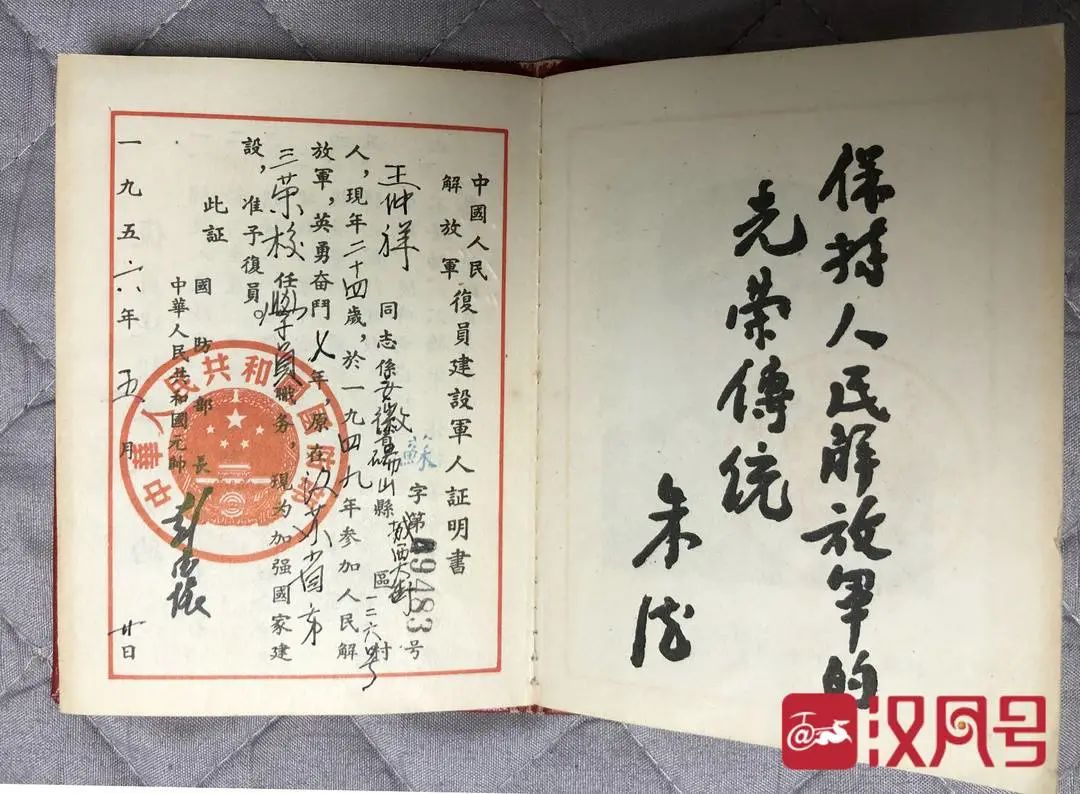 保持人民解放軍的
光荣傳统
朱德
中國人民
解放軍
復員建設軍人証明書
蘇字第09483号
王仲祥同志係安徽省碭山縣城西大街區一二六号村
人，現年二十四歲，於一九四九年參加人民解
放軍，英勇奋鬥七年，原在江苏省第
三荣校任學員職务，現为加强國家建
設，准予復員。
此証
國防部長
中華人民共和國元帥
彭德懷
一九五六年五月廿日
中華人民共和國國防部
汉风号